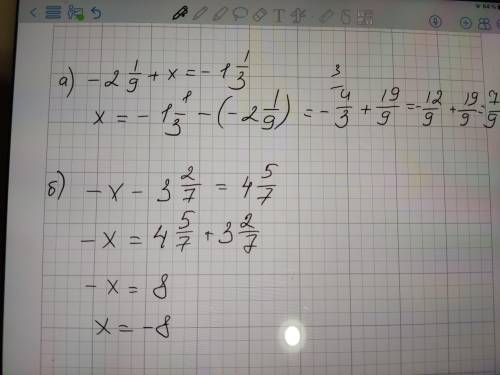 а) - 2 1/9 + x = - 1 1/3
x = - 1 1/3 - (- 2 1/9) = - 4/3 + 19/9 = - 12/9 + 19/9 = 7/9
б) - x - 3 2/7 = 4 5/7
- x = 4 5/7 + 3 2/7
- x = 8
x = - 8